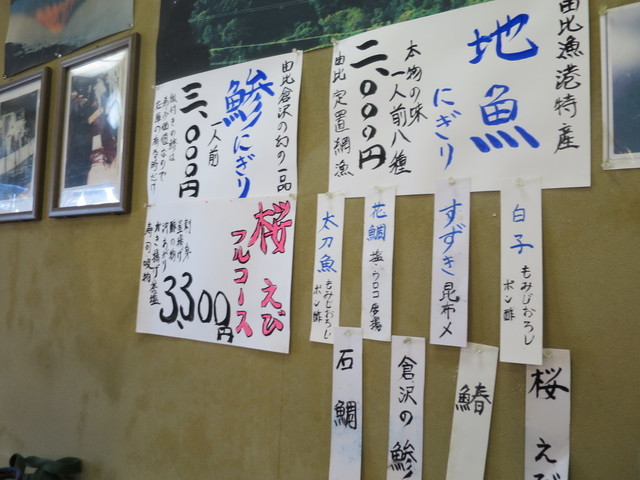 由比漁港特産
地魚
にぎり
本物の味
一人前八種
二、〇〇〇円
由比 定置網漁
由比倉沢の幻の一品
鯵にぎり
一人前
三、〇〇〇円
桜えび
フルコース
刺身
3,300円
白子
もみじおろし
ポン酢
すずき昆布〆
花鯛
太刀魚
もみじおろし
ポン酢
桜えび
鰆
倉沢の鯵
石鯛